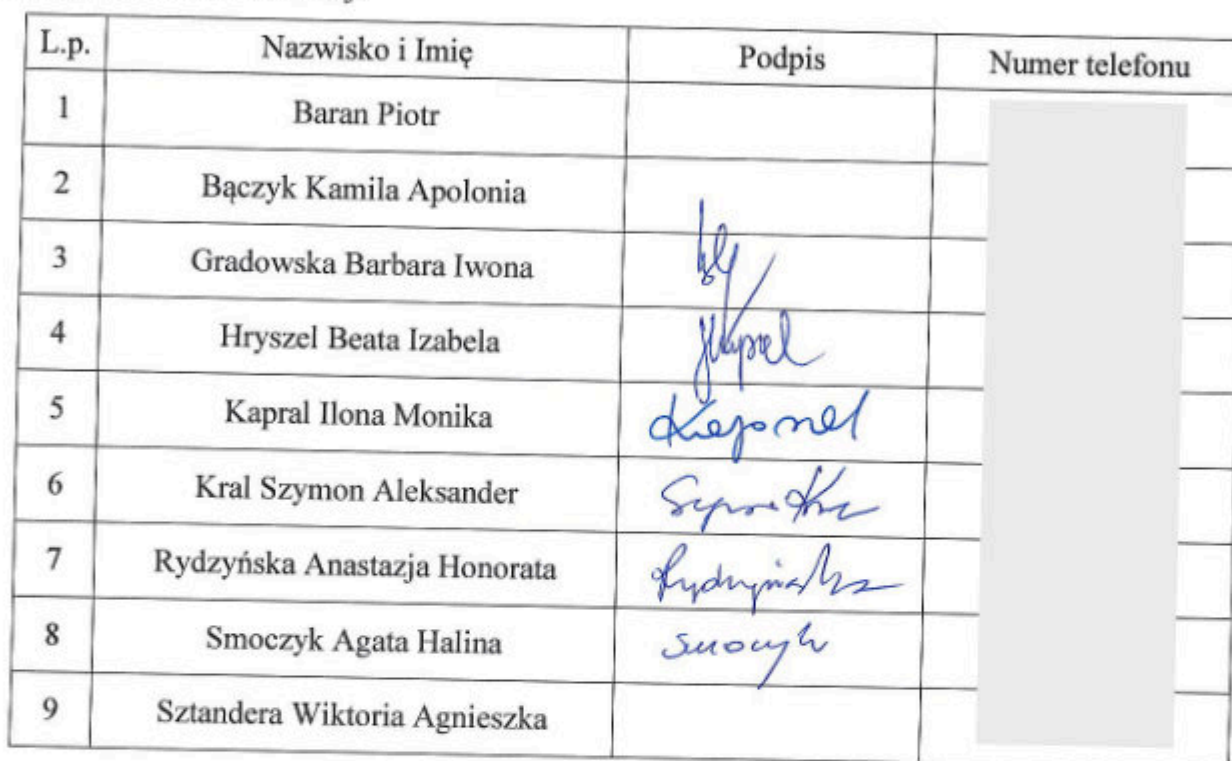 L.p. Nazwisko i Imię Podpis Numer telefonu
1 Baran Piotr
2 Bączyk Kamila Apolonia
3 Gradowska Barbara Iwona
4 Hryszel Beata Izabela
5 Kapral Ilona Monika
6 Kral Szymon Aleksander
7 Rydzyńska Anastazja Honorata Rydzyńska
8 Smoczyk Agata Halina Smoczyk
9 Sztandera Wiktoria Agnieszka